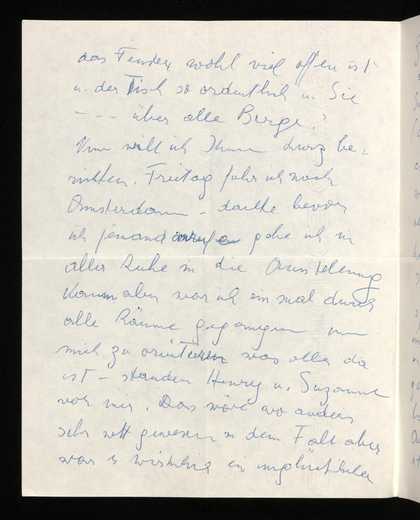 das Fenster wohl viel offen ist
u. der Tisch so ordentlich u. Sie
--- über alle Berge?
Nun will ich Ihnen kurz be-
richten. Freitag fuhr ich nach
Amsterdam - dachte bevor
ich jemand anrufe gehe ich in
aller Ruhe in die Ausstellung
Kaum aber war ich einmal durch
alle Räume gegangen um
mich zu orientieren was alles da
ist - standen Henry u. Suzanne
vor mir. Das wäre wo anders
sehr nett gewesen in dem Fall aber
war es wirklich ein unglücklicher